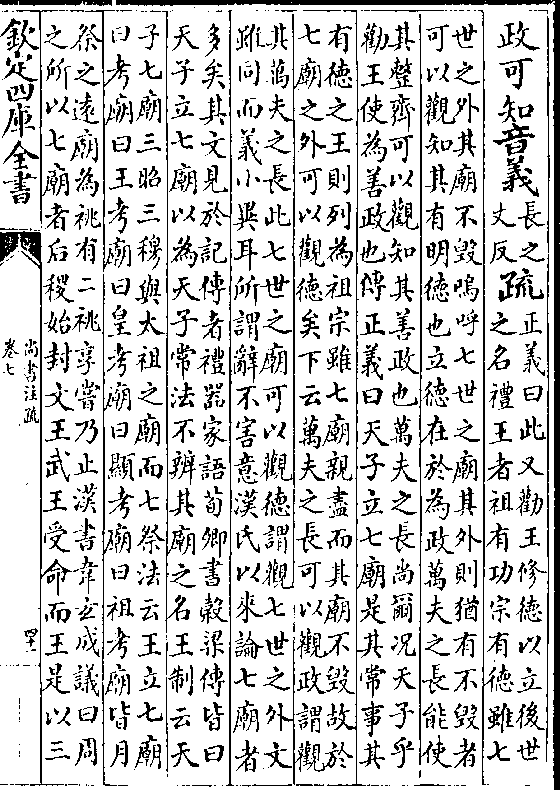 政可知音義長之丈反疏正義曰此又勸王修德以立後世之名禮王者祖有功宗有德雖七
世之外其廟不毀嗚呼七世之廟其外則猶有不毀者
可以觀知其有明德也立德在於為政萬夫之長能使
其整齊可以觀知其善政也萬夫之長尚爾況天子乎
勸王使為善政也傳正義曰天子立七廟是其常事其
有德之王則列為祖宗雖七廟親盡而其廟不毀故於
七廟之外可以觀德矣下云萬夫之長可以觀政謂觀
其萬夫之長此七世之廟可以觀德謂觀七世之外文
雖同而義小異耳所謂辭不害意漢氏以來論七廟者
多矣其文見於記傳者禮器家語荀卿書穀梁傳皆曰
天子立七廟以為天子常法不辨其廟之名王制云天
子七廟三昭三穆與太祖之廟而七祭法云王立七廟
曰考廟曰王考廟曰皇考廟曰顯考廟曰祖考廟皆月
祭之遠廟為祧有二祧享嘗乃止漢書韋玄成議曰周
之所以七廟者后稷始封文王武王受命而王是以三
欽定四庫全書
尚書注疏
卷七
四十二